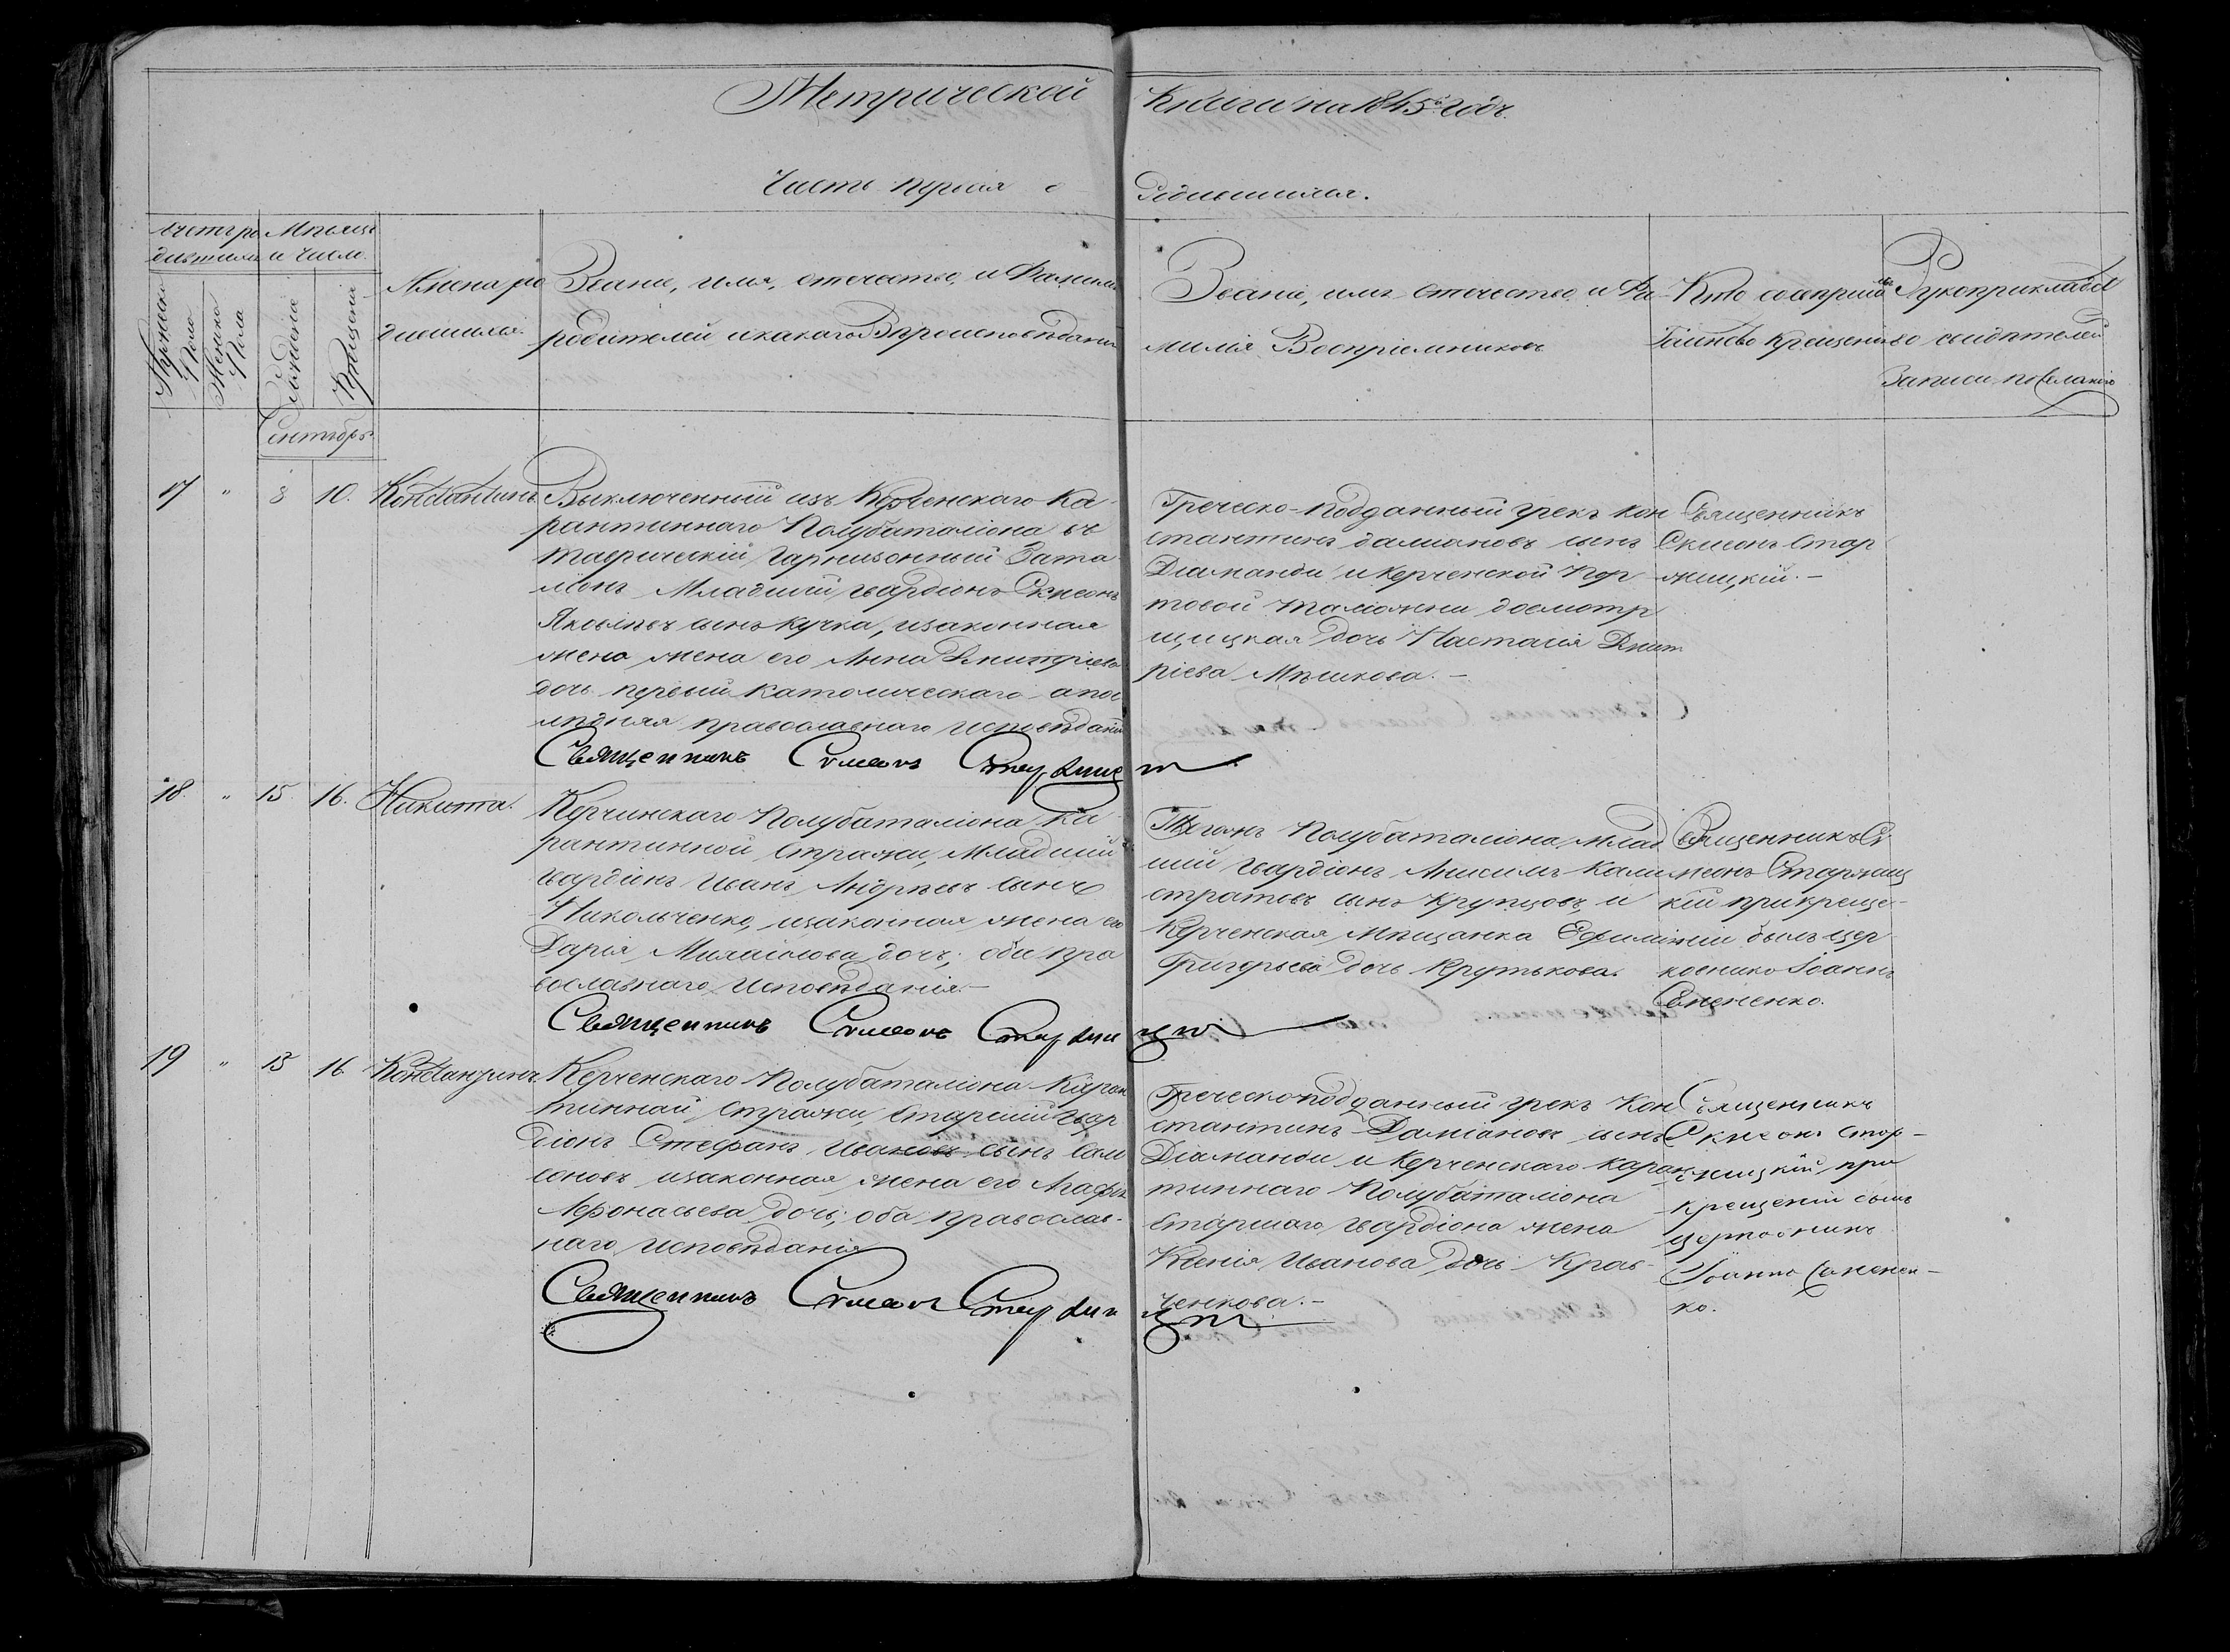 Метрической Книги на 1845й годъ.
Часть первая о Родившихся.
Счетъ ро Мѣсяцъ
дившихся и число.
Мужеска Пола
Женска Пола
Рожденія
Крещенія
Имена ро
дившихся.
Званіе, имя, отечество, и Фамилія
родителей и какаго Вѣроисповѣданія
Званіе, имя отечество и Фа-
милія Воспріемниковъ
Кто совершалъ
Таинство Крещенія
Рукоприкладст
во свидѣтелей
записи по желанію
Сентябрь
17 " 8 10. Константинъ
Выключенный изъ Керченскаго Ка-
рантиннаго Полубаталіона въ
таврическій Гарнизонный Бата
ліонъ Младшій гвардіонъ Симеонъ
Яковлевъ сынъ Кучка, изаконная
жена жена его Анна Дмитріева
дочь первый католическаго а пос
лѣдняя православнаго исповѣданія
Греческо-подданный грекъ Кон
стантинъ даміановъ сынъ
Діаманди и Керченской Пор
товой таможни досмотр
щицкая дочь Настасія Дмит
ріева Мѣшкова.-
Священникъ
Симеонъ Стар
жицкій.-
Священникъ Симеонъ Старжицкій
18. " 15 16. Никита.
Керчинскаго Полубаталіона Ка
рантинной Стражи, Младшій
гвардіонъ Иванъ Андреевъ сынъ
Никольченко, изаконная жена его
Дарія Михайлова дочь, оба пра
вославнаго Исповѣданія.-
Тѣгожъ Полубаталіона, млад
шій гвардіонъ Анисимъ Кали
стратовъ сынъ Крупцовъ, и
Керченская Мѣщанка Ефимія
Григорьева дочь Крутькова.
Священникъ Си
меонъ Старжиц
кій при креще-
ніи былъ цер
ковникъ Іоаннъ
Семененко.
Священникъ Симеонъ Старжицкій
19 " 15 16. Константинъ
Керченскаго Полубаталіона Каран
тинной Стражи, Старшій гвар
діонъ Стефанъ Ивановъ сынъ Сам
соновъ изаконная жена его Агафія
Афонасьева дочь, оба православ-
наго исповѣданія
Греческоподданный грекъ Кон
стантинъ Даміановъ сынъ
Діаманди и Керченскаго Каран
тиннаго Полубаталіона
Старшаго гвардіона жена
Ксенія Иванова дочь Крав-
ченкова.-
Священникъ
Симеонъ Стар-
жицкій, при
крещеніи былъ
церковникъ
Іоаннъ Семенен-
ко.
Священникъ Симеонъ Старжицкій